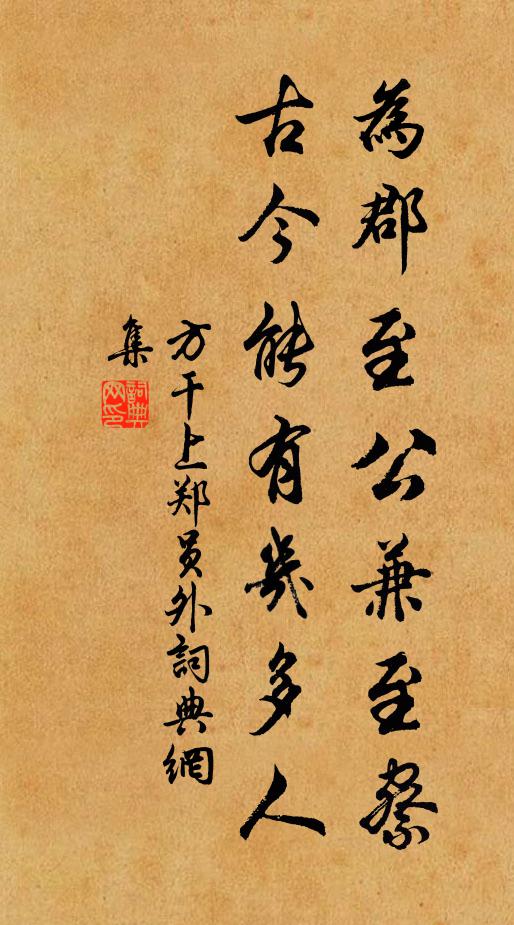 為郡至公兼至察
古今能有幾多人
方干上郑员外詞典網
集
詞典網印